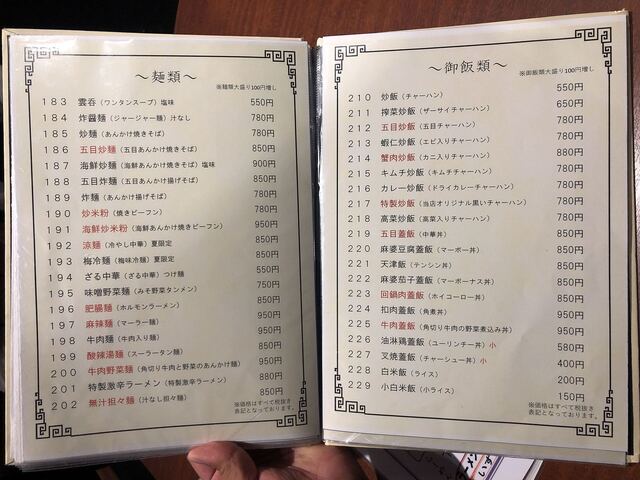 ～麺類～
※麺類大盛り100円増し
183 雲呑（ワンタンスープ）塩味 550円
184 炸醤麺（ジャージャー麺）汁なし 780円
185 炒麺（あんかけ焼きそば） 780円
186 五目炒麺（五目あんかけ焼きそば） 850円
187 海鮮炒麺（海鮮あんかけ焼きそば）塩味 900円
188 五目炸麺（五目あんかけ揚げそば） 850円
189 炸麺（あんかけ揚げそば） 780円
190 炒米粉（焼きビーフン） 780円
191 海鮮炒米粉（海鮮あんかけ焼きビーフン） 950円
192 涼麺（冷やし中華）夏限定 850円
193 梅冷麺（梅味冷麺）夏限定 850円
194 ざる中華（ざる中華）つけ麺 550円
195 味噌野菜麺（みそ野菜タンメン） 750円
196 肥腸麺（ホルモンラーメン） 850円
197 麻辣麺（マーラー麺） 950円
198 牛肉麺（牛肉入り麺） 950円
199 酸辣湯麺（スーラータン麺） 850円
200 牛肉野菜麺（角切り牛肉と野菜のあんかけ麺） 950円
201 特製激辛ラーメン（特製激辛ラーメン） 880円
202 無汁担々麺（汁なし担々麺） 850円
※価格はすべて税抜き
表記となっております。
～御飯類～
※御飯類大盛り100円増し
210 炒飯（チャーハン） 550円
211 搾菜炒飯（ザーサイチャーハン） 650円
212 五目炒飯（五目チャーハン） 780円
213 蝦仁炒飯（エビ入りチャーハン） 780円
214 蟹肉炒飯（カニ入りチャーハン） 880円
215 キムチ炒飯（キムチチャーハン） 780円
216 カレー炒飯（ドライカレーチャーハン） 780円
217 特製炒飯（当店オリジナル黒いチャーハン） 780円
218 高菜炒飯（高菜入りチャーハン） 780円
219 五目蓋飯（中華丼） 850円
220 麻婆豆腐蓋飯（マーボー丼） 850円
221 天津飯（テンシン丼） 850円
222 麻婆茄子蓋飯（マーボーナス丼） 850円
223 回鍋肉蓋飯（ホイコーロー丼） 850円
224 扣肉蓋飯（角煮丼） 850円
225 牛肉蓋飯（角切り牛肉の野菜煮込み丼） 950円
226 油淋鶏蓋飯（ユーリンチー丼）小 580円
227 叉焼蓋飯（チャーシュー丼）小 400円
228 白米飯（ライス） 200円
229 小白米飯（小ライス） 150円
※価格はすべて税抜き
表記となっております。